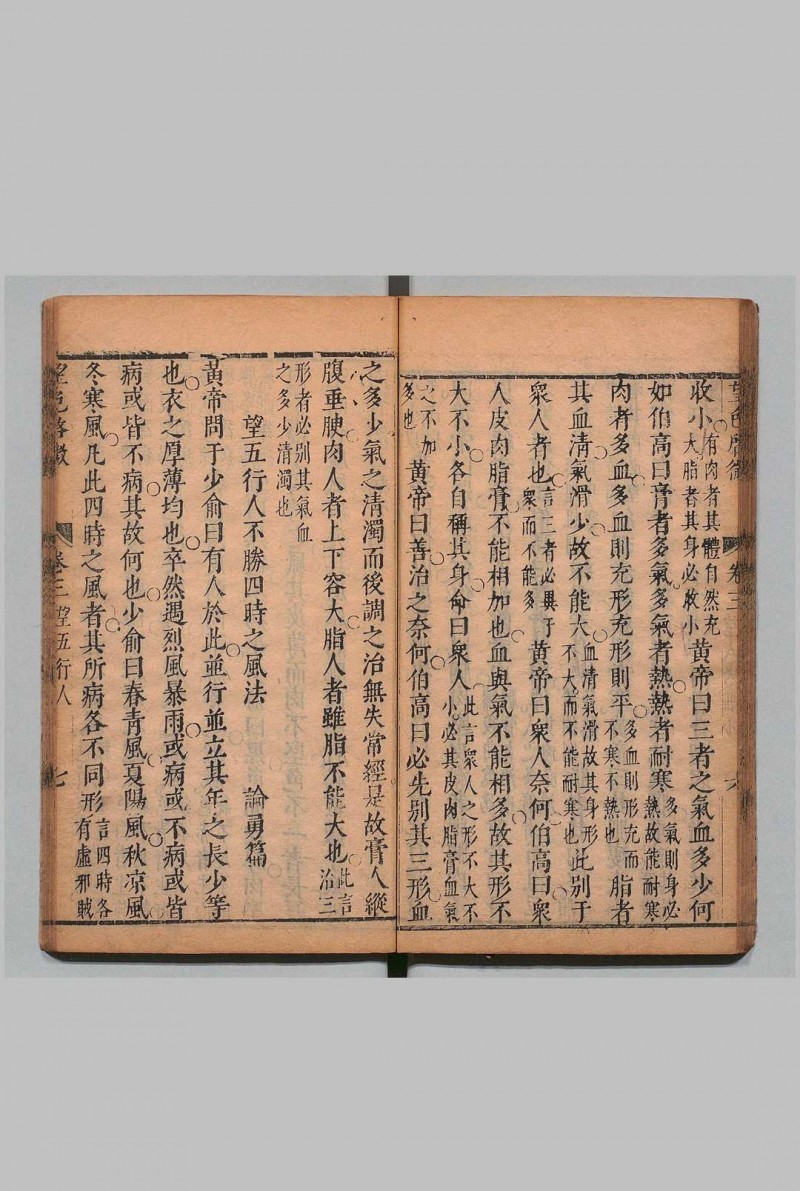 望色啓微 卷三 六
收小有肉者其體自然充大脂者其身必收小黃帝曰三者之氣血多少何
如伯高曰膏者多氣多氣者熱熱者耐寒多氣則身必熱故能耐寒
肉者多血多血則充形充形則平多血則形充而不寒不熱也脂者
其血清氣滑少故不能大血清氣滑故其身形不大而不能耐寒也此別于
衆人者也言三者必異于衆而不能多黃帝曰衆人奈何伯高曰衆
人皮肉脂膏不能相加也血與氣不能相多故其形不
大不小各自稱其身命曰衆人此言衆人之形不大不小必其皮肉脂膏血氣
之不加多也黃帝曰善治之奈何伯高曰必先別其三形血
之多少氣之清濁而後調之治無失常經是故膏人縱
腹垂腴肉人者上下容大脂人者雖脂不能大也此言治三
形者必別其氣血之多少清濁也
望五行人不勝四時之風法 論勇篇
黃帝問于少俞曰有人於此並行並立其年之長少等
也衣之厚薄均也卒然遇烈風暴雨或病或不病或皆
病或皆不病其故何也少俞曰春青風夏陽風秋涼風
冬寒風凡此四時之風者其所病各不同形言四時各有虛邪賊
望色啓微 卷三 望五行人 七